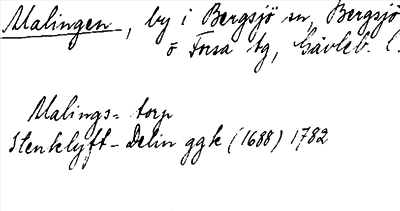 Malingen, by i Bergsjö sn, Bergsjö
o Forsa tg, Gävleb. l.
Malings= torp
Stenklyft- Delin ggk (1688) 1782